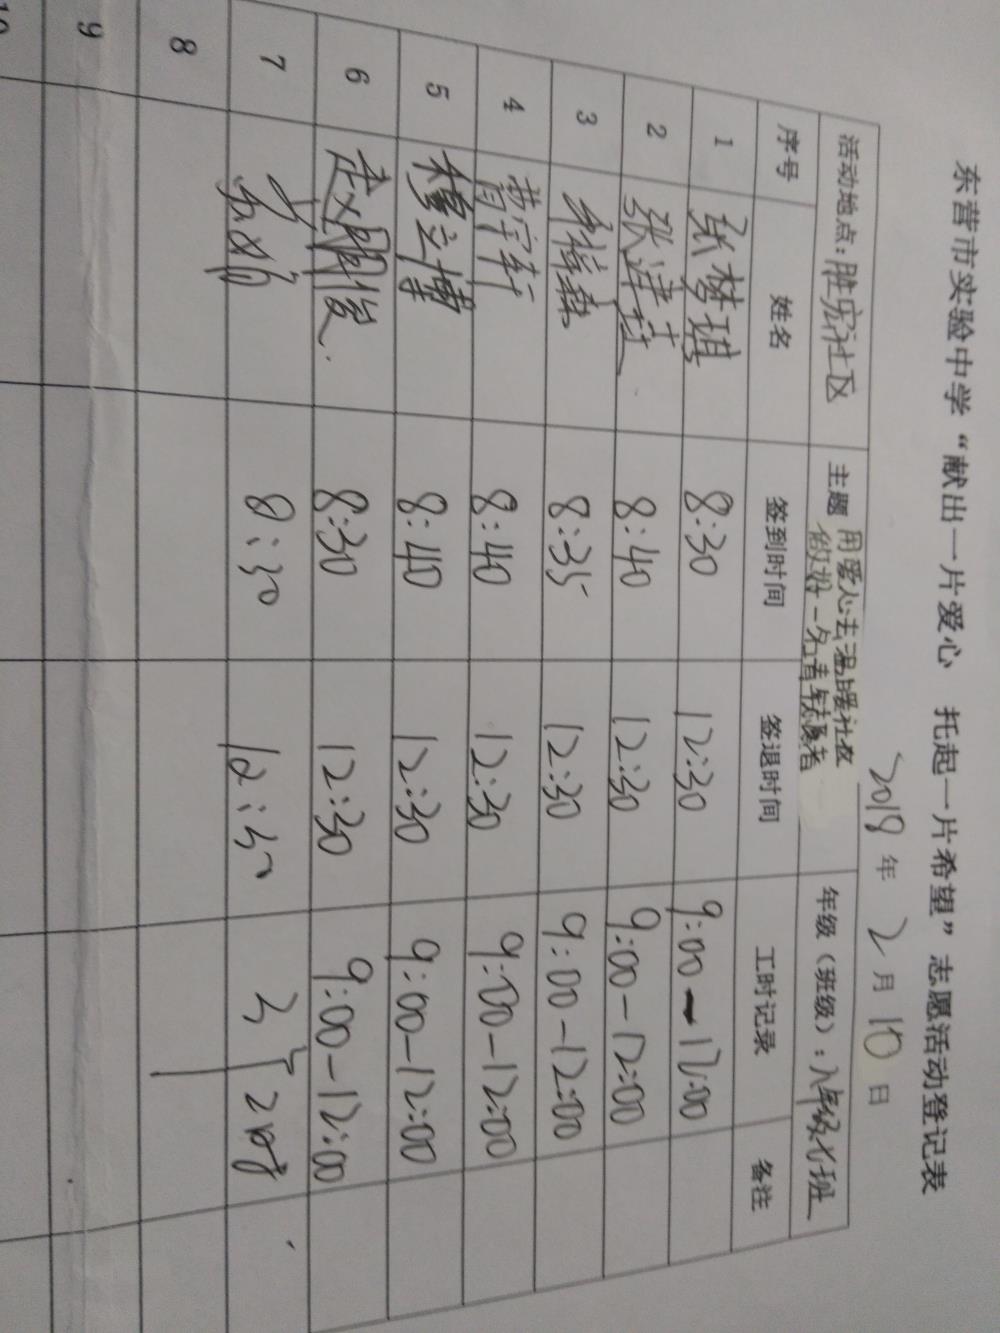 东营市实验中学“献出一片爱心 托起一片希望”志愿活动登记表
2018年2月10日
活动地点：胜宏社区 主题 用爱心去温暖社区 做好一名青年志愿者 年级（班级）：八年级七班
序号 姓名 签到时间 签退时间 工时记录 备注
1 张梦琪 8:30 12:30 9:00-12:00
2 张津 8:40 12:30 9:00-12:00
3 8:35 12:30 9:00-12:00
4 曹宇轩 8:40 12:30 9:00-12:00
5 穆立博 8:40 12:30 9:00-12:00
6 赵俊 8:30 12:30 9:00-12:00
7 8:30 12:30 3小时
8
9
10